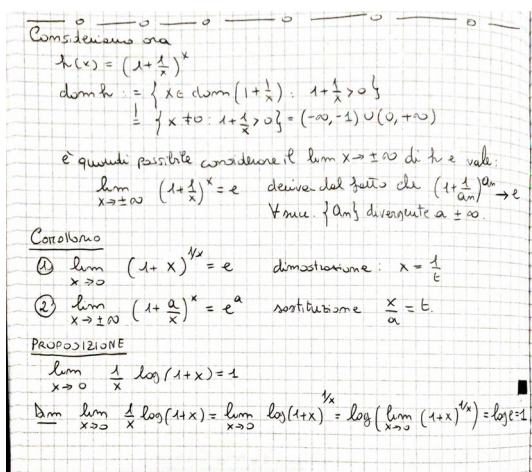 Consideriamo ora
h(x) = (1 + 1/x)^x
dom h := { x ∈ dom (1 + 1/x) : 1 + 1/x > 0 }
= { x ≠ 0 : 1 + 1/x > 0 } = (-∞, -1) ∪ (0, +∞)
è quindi possibile considerare il lim x → ±∞ di h e vale:
lim x → ±∞ (1 + 1/x)^x = e deriva dal fatto che (1 + 1/an)^an → e
∀ succ. {an} divergente a ±∞.
Corollario
① lim x → 0 (1 + x)^1/x = e dimostrazione: x = 1/t
② lim x → ±∞ (1 + a/x)^x = e^a sostituzione x/a = t.
PROPOSIZIONE
lim x → 0 1/x log (1 + x) = 1
Dim lim x → 0 1/x log (1 + x) = lim x → 0 log (1 + x)^1/x = log ( lim x → 0 (1 + x)^1/x ) = log e = 1